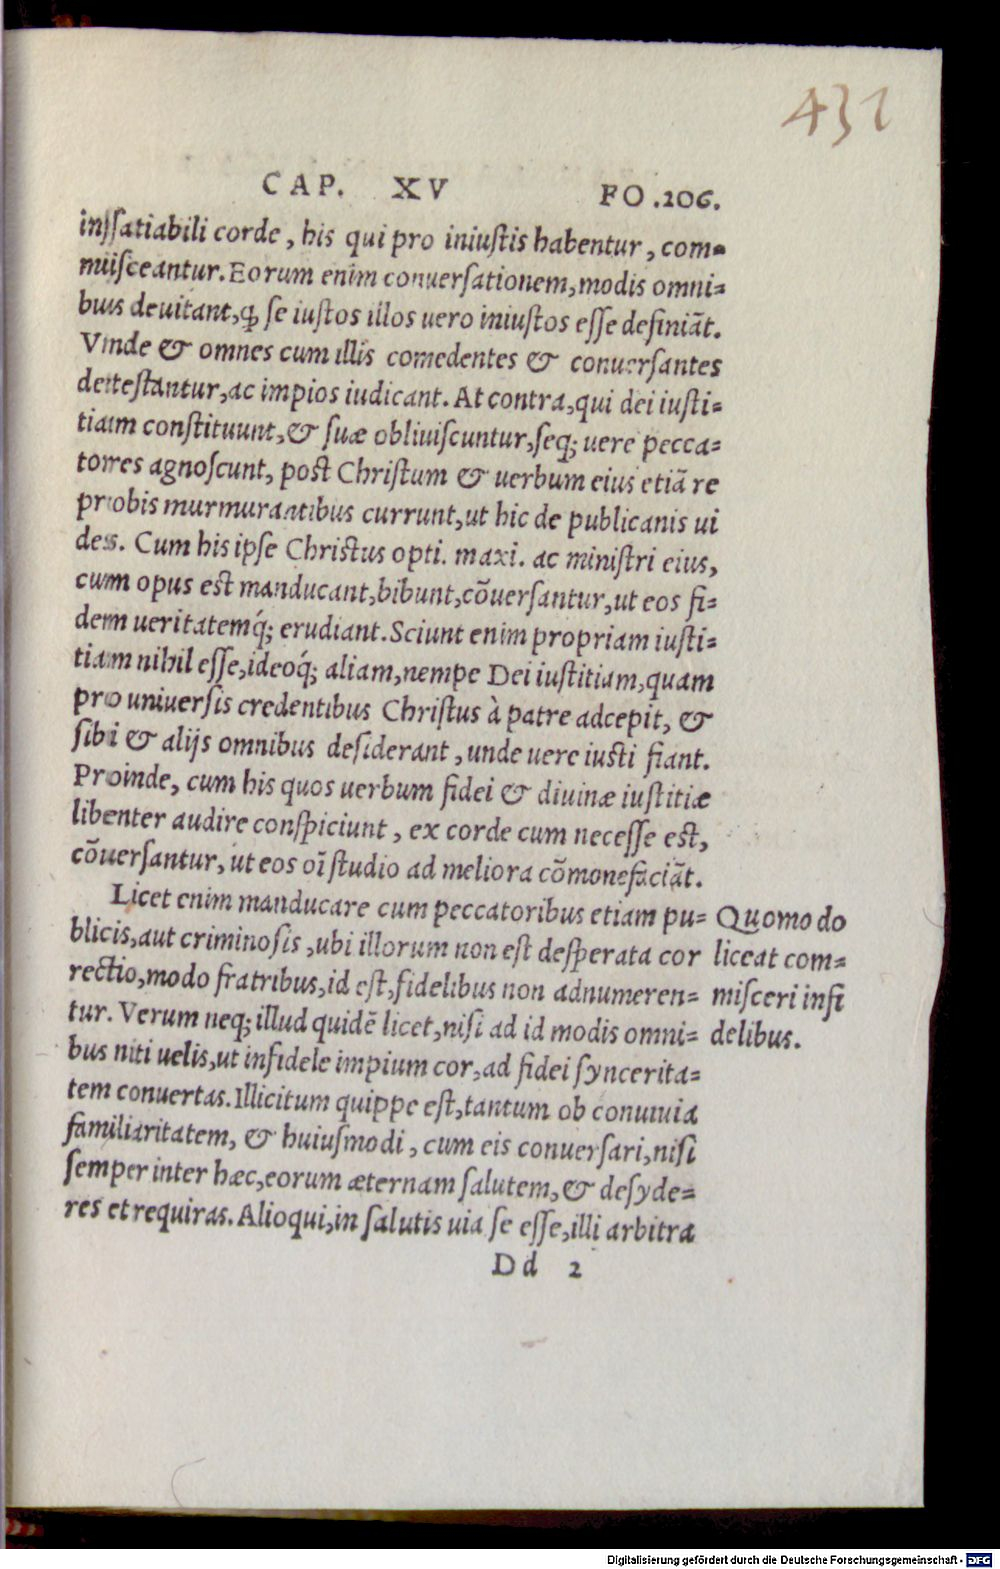 431
CAP. XV FO.206.
insatiabili corde, his qui pro iniustis habentur, com=
misceantur. Eorum enim conuersationem, modis omni=
bus deuitant, ꝙ se iustos illos uero iniustos esse definiāt.
Vnde & omnes cum illis comedentes & conuersantes
detestantur, ac impios iudicant. At contra, qui dei iusti=
tiam constituunt, & suæ obliuiscuntur, seq; uere pecca=
tores agnoscunt, post Christum & uerbum eius etiā re
probis murmurantibus currunt, ut hic de publicanis ui
des. Cum his ipse Christus opti. maxi. ac ministri eius,
cum opus est manducant, bibunt, cōuersantur, ut eos fi=
dem ueritatemq́; erudiant. Sciunt enim propriam iusti=
tiam nihil esse, ideoq́; aliam, nempe Dei iustitiam, quam
pro uniuersis credentibus Christus à patre adcepit, &
sibi & alijs omnibus desiderant, unde uere iusti fiant.
Proinde, cum his quos uerbum fidei & diuinæ iustitiæ
libenter audire conspiciunt, ex corde cum necesse est,
cōuersantur, ut eos oī studio ad meliora cōmonefaciāt.
Licet enim manducare cum peccatoribus etiam pu=
blicis, aut criminosis, ubi illorum non est desperata cor
rectio, modo fratribus, id est, fidelibus non adnumeren=
tur. Verum neq; illud quidē licet, nisi ad id modis omni=
bus niti uelis, ut infidele impium cor, ad fidei syncerita=
tem conuertas. Illicitum quippe est, tantum ob conuiuia
familiaritatem, & huiusmodi, cum eis conuersari, nisi
semper inter hæc, eorum æternam salutem, & desyde=
res et requiras. Alioqui, in salutis uia se esse, illi arbitra
Quomodo
liceat com=
misceri infi
delibus.
Dd 2
Digitalisierung gefördert durch die Deutsche Forschungsgemeinschaft - DFG